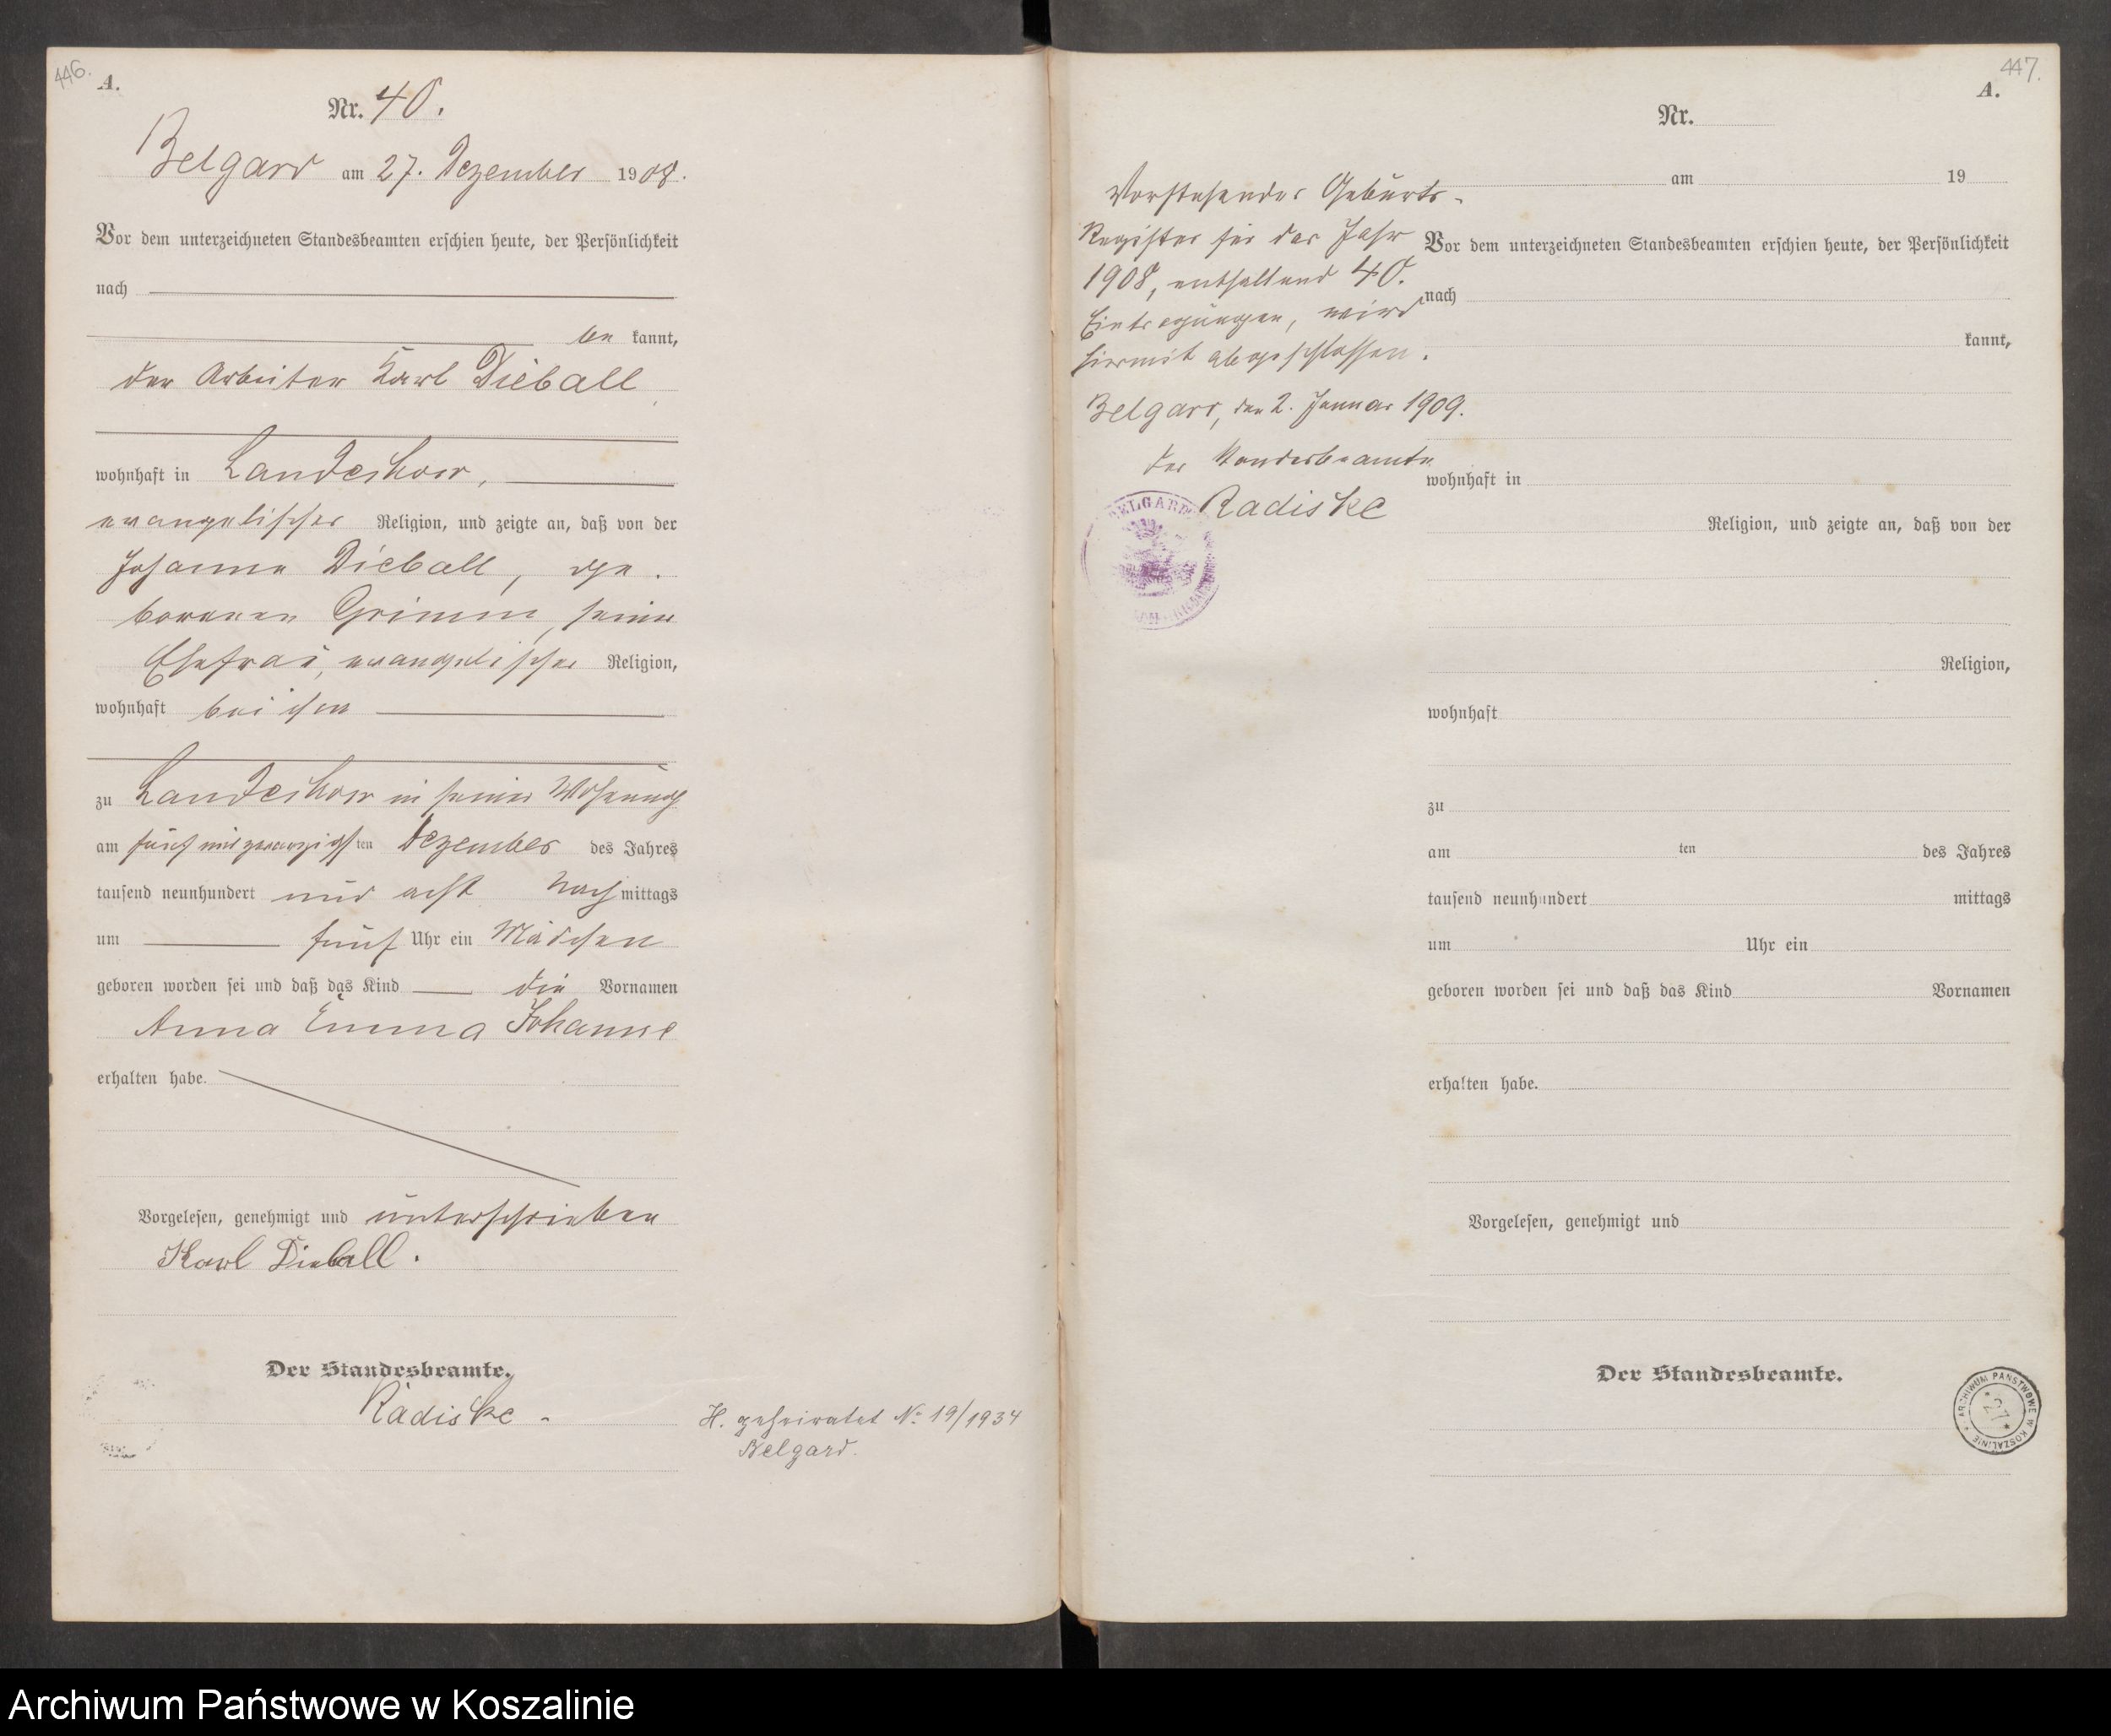 446.
A.
Nr. 40.
Belgard am 27. Dezember 1908.
Vor dem unterzeichneten Standesbeamten erschien heute, der Persönlichkeit
nach
be kannt,
der Arbeiter Karl Dieball
wohnhaft in Landeshorr,
evangelischer Religion, und zeigte an, daß von der
Johanne Dieball, ge-
borenen Grimm, seine
Ehefrau, evangelischer Religion,
wohnhaft bei ihm
zu Landeshorr in seiner Wohnung
am fünf und zwanzigsten Dezember des Jahres
tausend neunhundert und acht Nachmittags
um fünf Uhr ein Mädchen
geboren worden sei und daß das Kind die Vornamen
Anna Emma Johanne
erhalten habe.
Vorgelesen, genehmigt und unterschrieben
Karl Dieball.
Der Standesbeamte.
Radiske.
H. geheiratet No 19/1934
Belgard.
447.
A.
Nr.
am 19
Vorstehendes Geburts-
Register für das Jahr
1908, enthaltend 40.
Eintragungen, wird
hiermit abgeschlossen.
Belgard, den 2. Januar 1909.
Der Standesbeamte
Radiske
BELGARD
Vor dem unterzeichneten Standesbeamten erschien heute, der Persönlichkeit
nach
kannt,
wohnhaft in
Religion, und zeigte an, daß von der
Religion,
wohnhaft
zu
am ten des Jahres
tausend neunhundert mittags
um Uhr ein
geboren worden sei und daß das Kind Vornamen
erhalten habe.
Vorgelesen, genehmigt und
Der Standesbeamte.
ARCHIWUM PAŃSTWOWE W KOSZALINIE
* 27 *
Archiwum Państwowe w Koszalinie